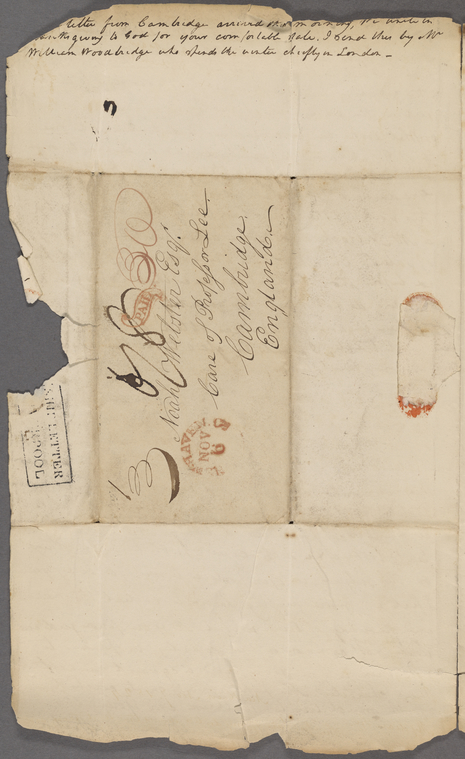 letter from Cambridge arrived this morning, We unite in
thanksgiving to God for your comfortable state. I send this by Mr
William Woodbridge who spends the winter chiefly in London –
PAID
Noah Webster Esqr.
Care of Professor Lee
Cambridge
England.
NOV
9
SHIP LETTER
POOL